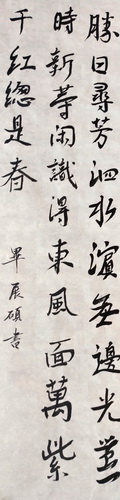 勝日尋芳泗水濱無邊光景一
時新等閑識得東風面萬紫
千紅總是春 畢展碩書